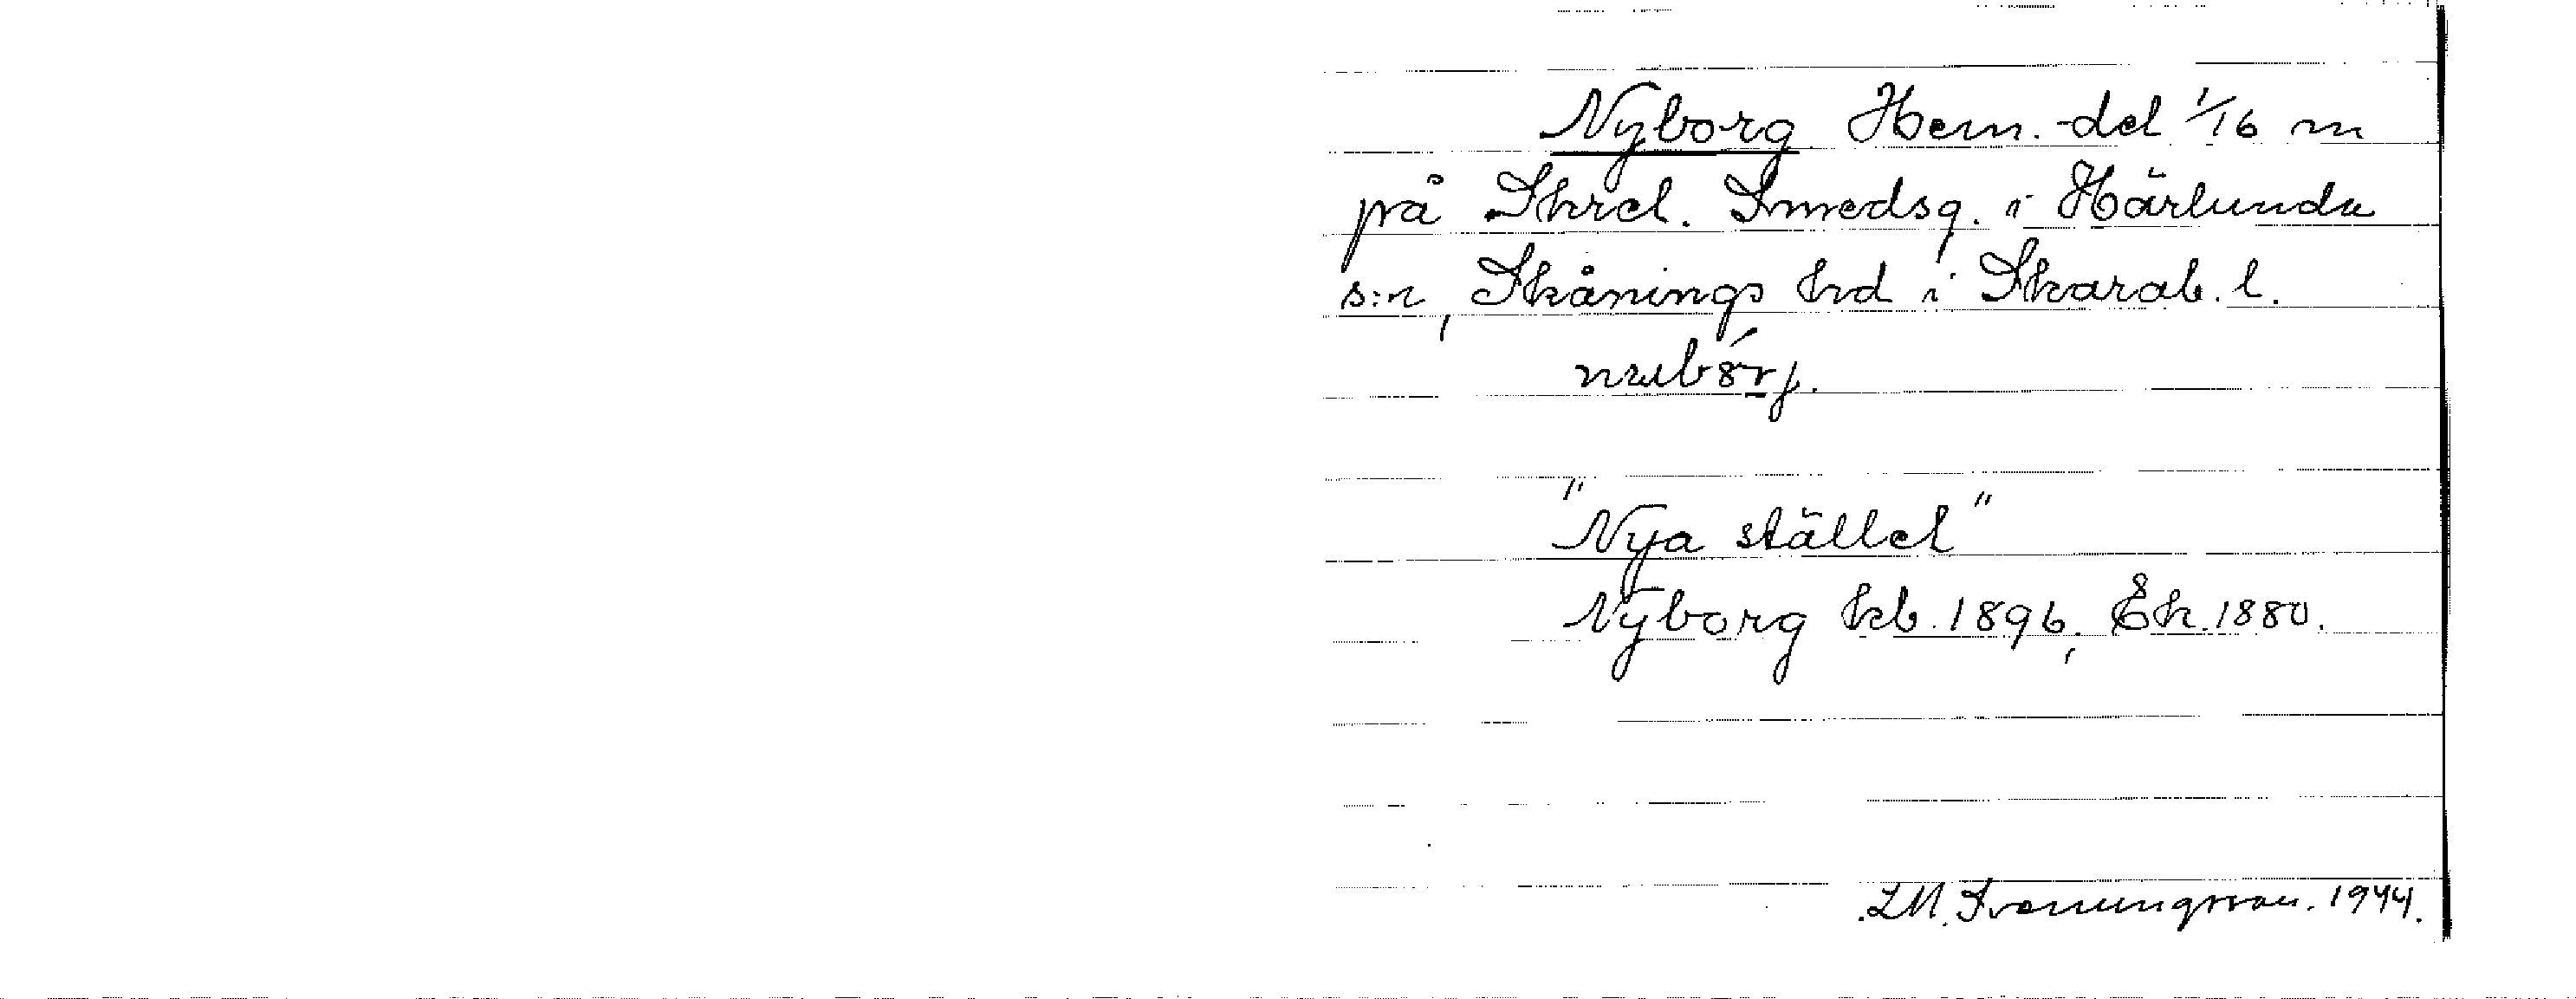 Nyborg Hem.-del 1/16 m
på Skrel. Smedsg. i Härlunda
s:n, Skånings hd i Skarab. l.
"Nya stället"
Nyborg kb. 1896, Ek. 1880.
LM. Svenungsson. 1944.